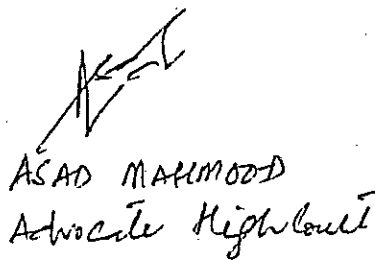 ASAD MAHMOOD
Advocate High Court